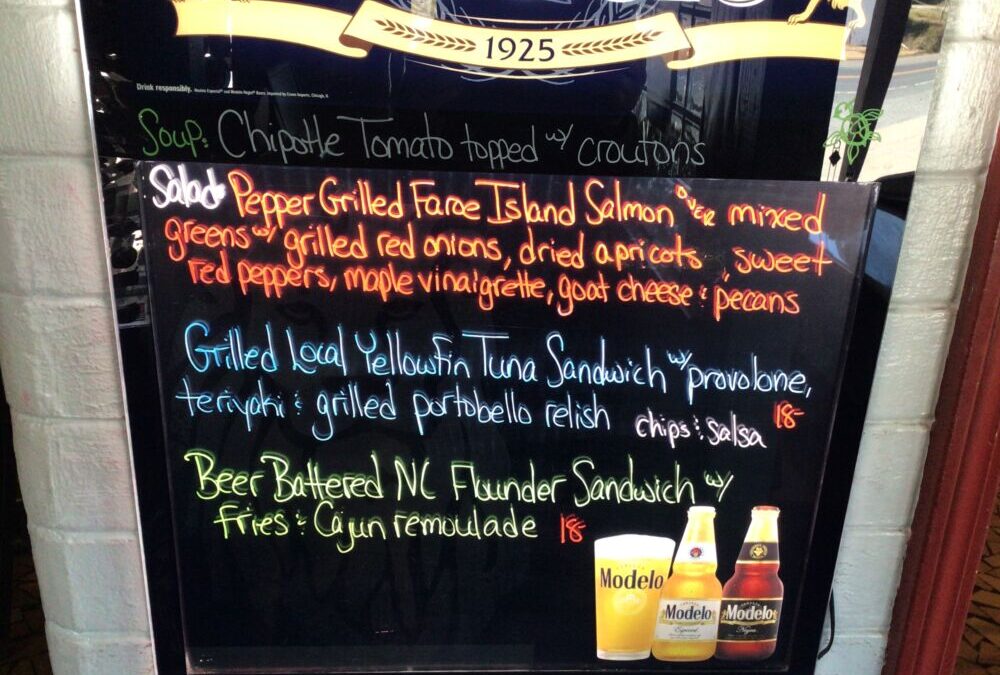 1925
Drink responsibly.
Soup: Chipotle Tomato topped w/ croutons
Salad: Pepper Grilled Faroe Island Salmon over mixed
greens w/ grilled red onions, dried apricots, sweet
red peppers, maple vinaigrette, goat cheese & pecans
Grilled Local Yellowfin Tuna Sandwich w/ provolone,
teriyaki & grilled portobello relish chips & salsa 18-
Beer Battered NC Flounder Sandwich w/
Fries & Cajun remoulade 18-
Modelo
Modelo
Especial
Modelo
Negra